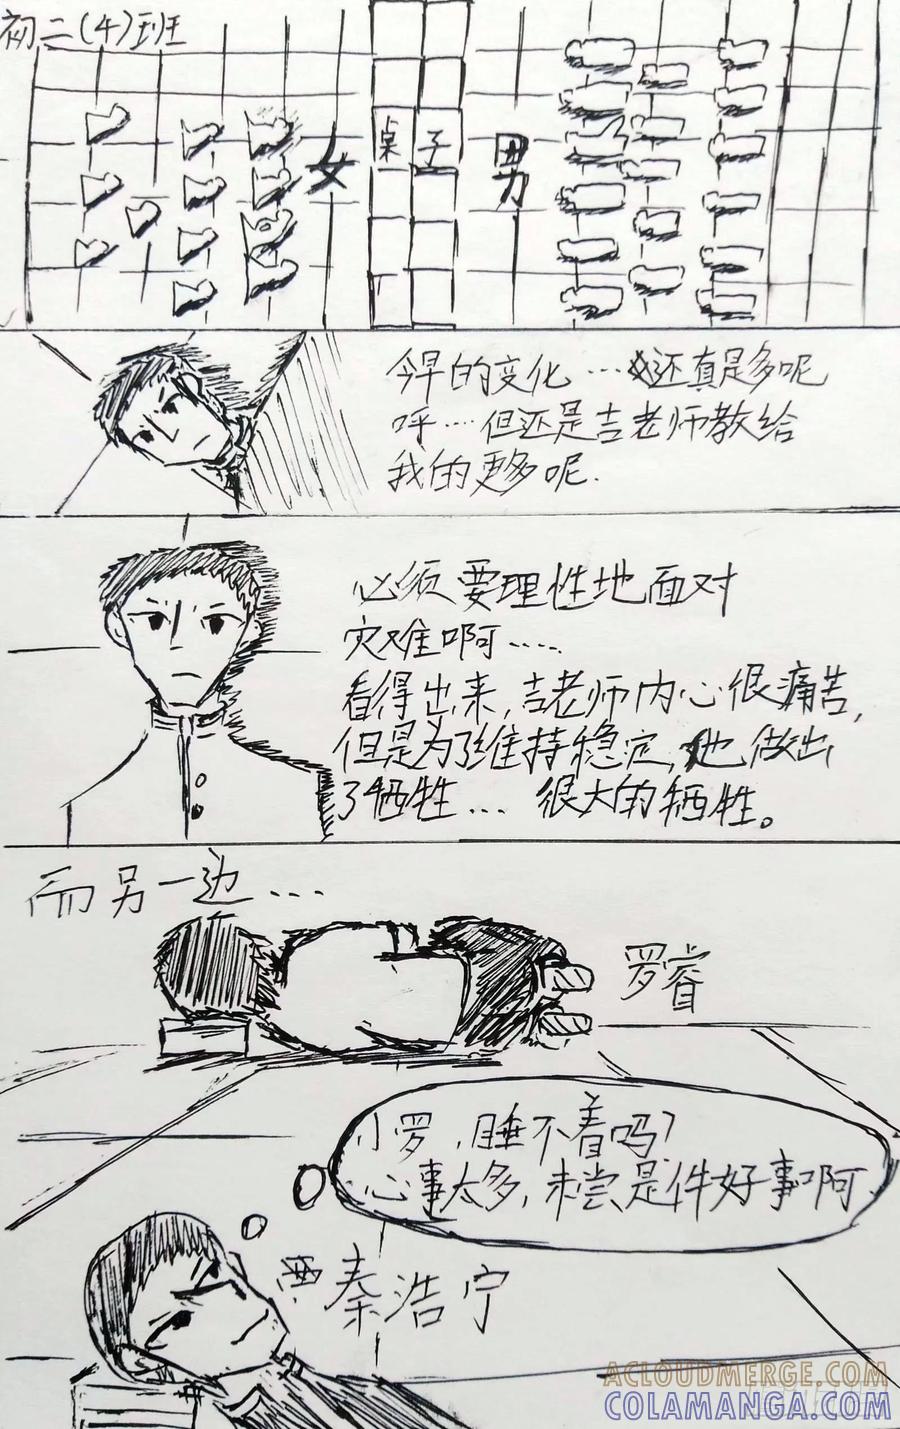 初二(4)班
女
桌子
男
今早的变化…还真是多呢
呼…但还是吉老师教给
我的更多呢.
必须要理性地面对
灾难啊……
看得出来,吉老师内心很痛苦,
但是为了维持稳定,他做出
了牺牲… 很大的牺牲。
而另一边…
罗睿
小罗,睡不着吗?
心事太多,未尝是件好事啊
秦浩宁
ACLOUDMERGE.COM
COLAMANGA.COM